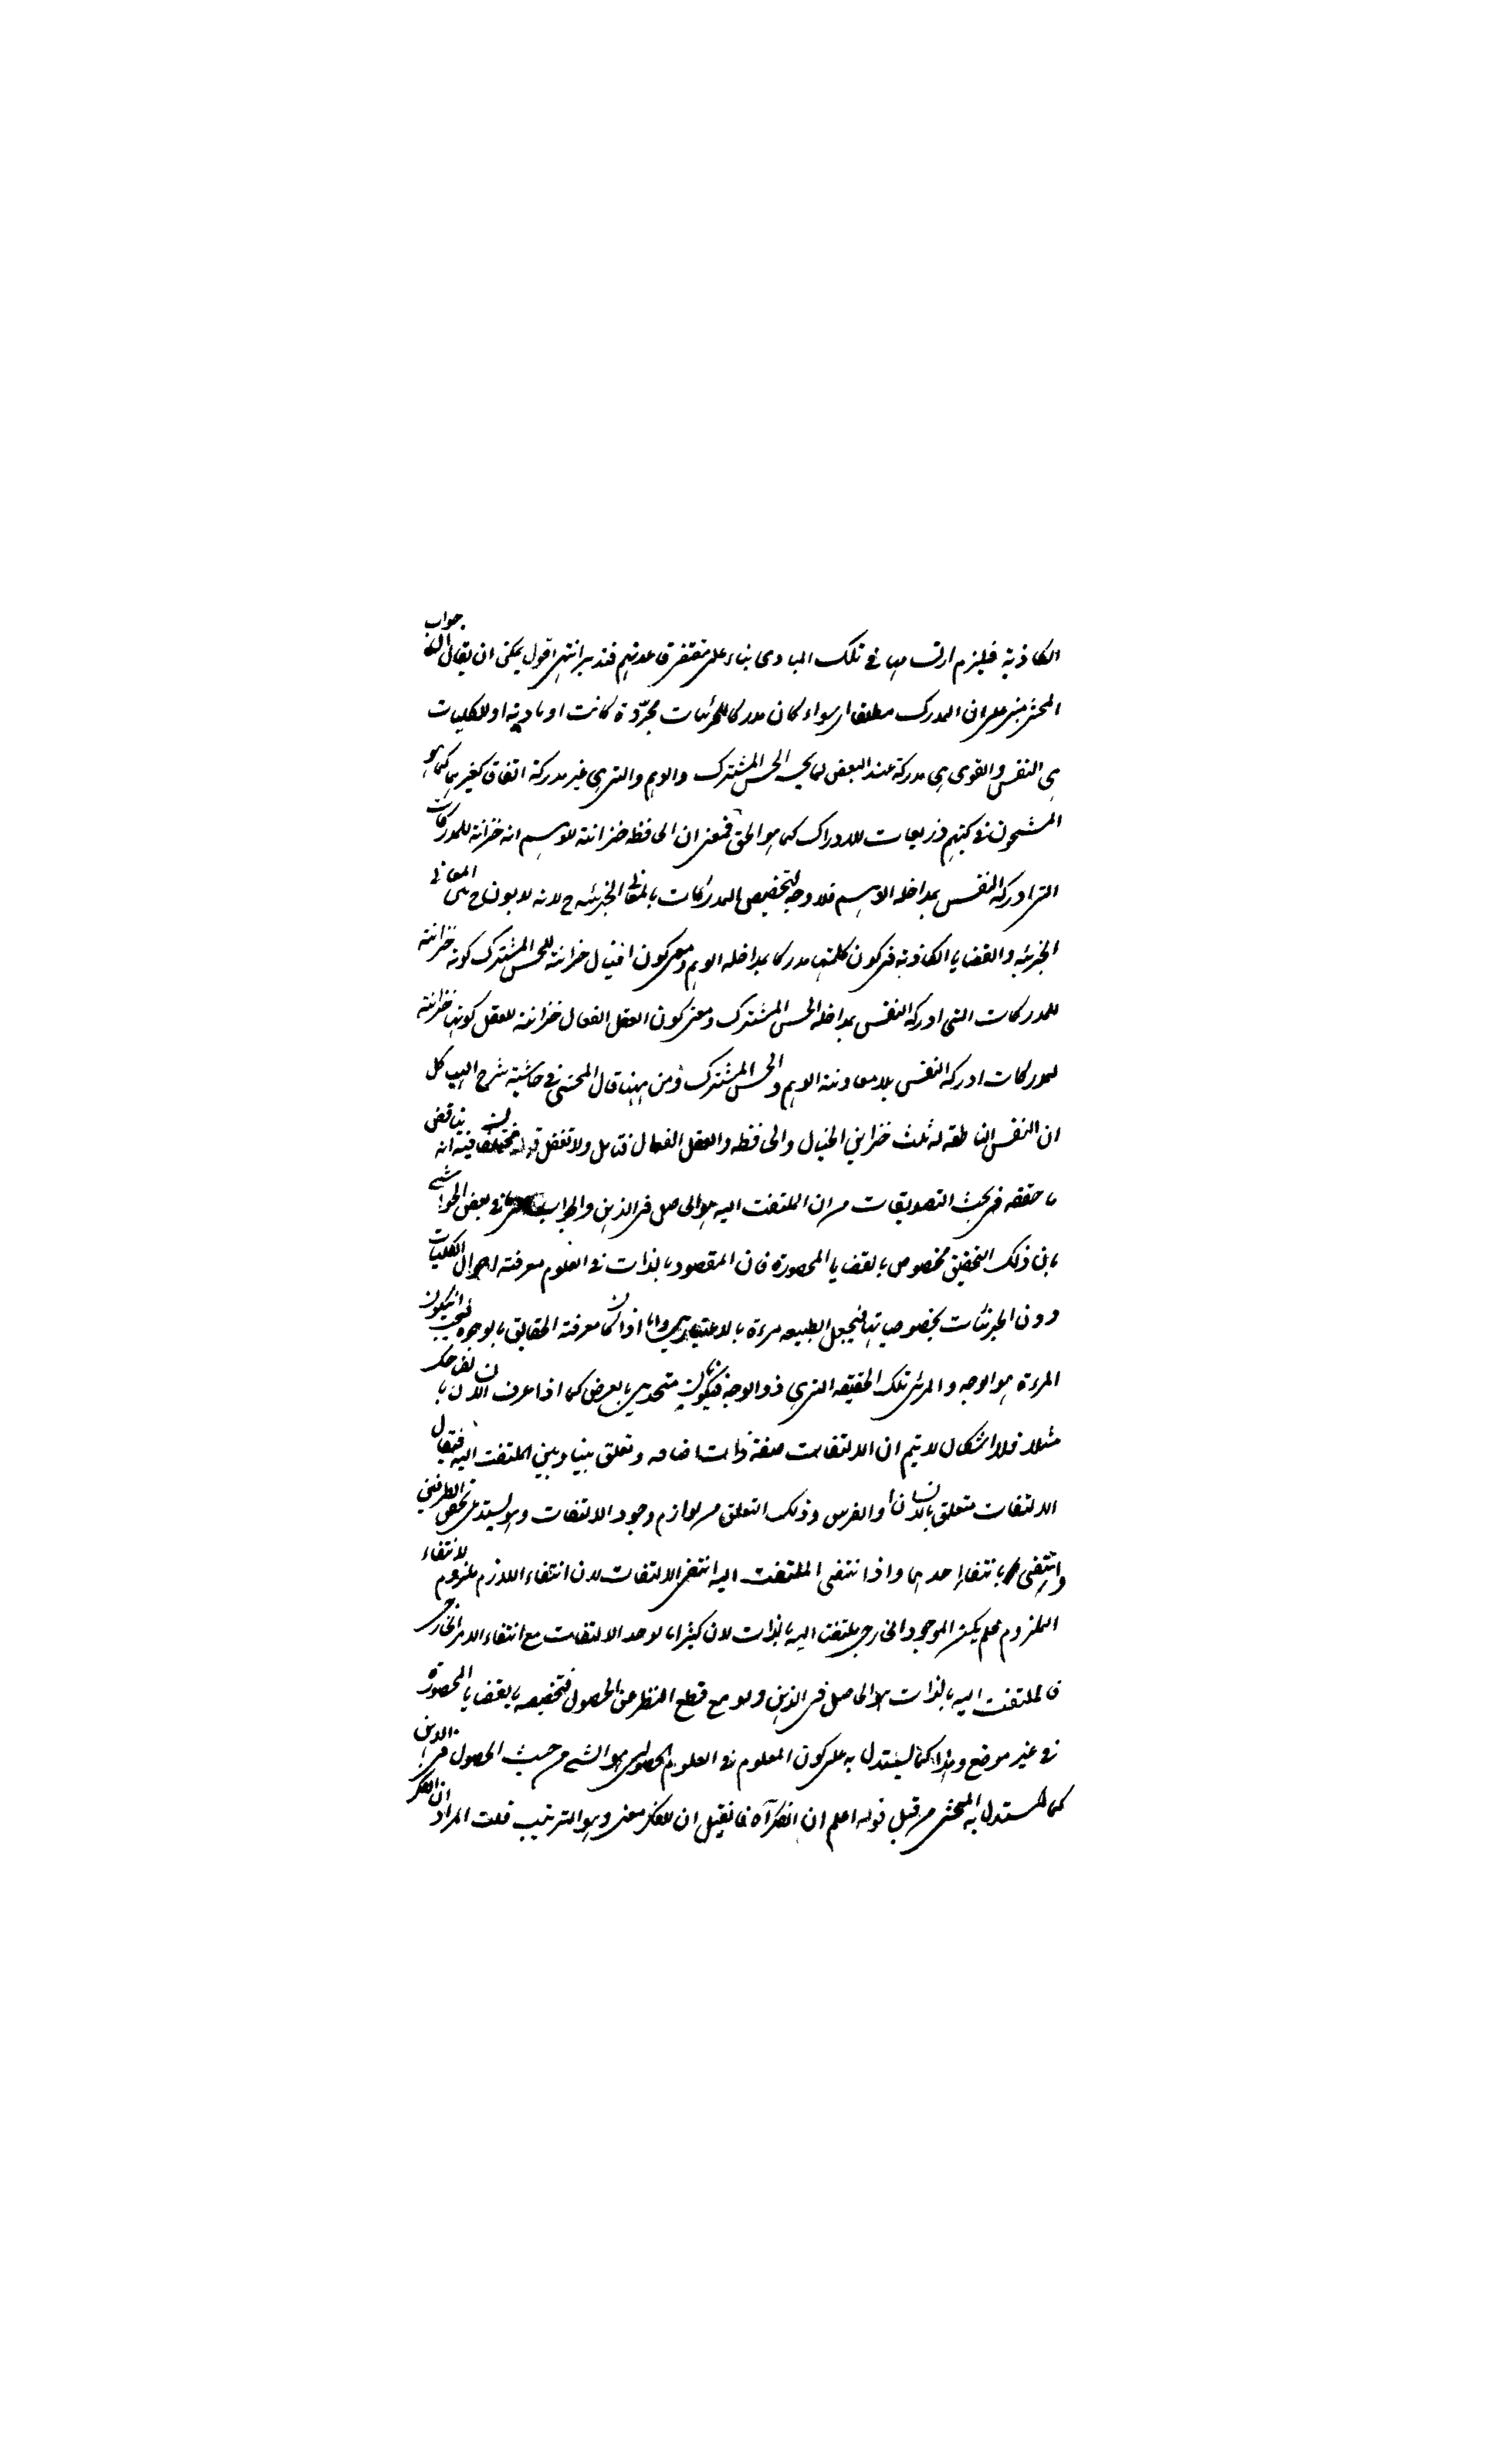 الكاذبة فيلزم ارتسامها في تلك المبادى بناء على مقتضى قاعدتهم فتدبر انتهى اقول يمكن ان يقال ان جواب
المحشى مبنى على ان المدرك مطلقا سواء كان مدركا للجزئيات مجردة كانت او مادية او للكليات
هى النفس والقوى هى مدركة عند البعض كالحس المشترك والوهم والتى هى غير مدركة اتفاقا كغيرهما كما هو
المشحون فى كتبهم ذريعات للادراك كما هو الحق فمعنى ان الحافظة خزانته للوهم انه خزانة للمدركات
التى ادركه النفس بمداخلة الوهم فلا وجه لتخصيص المدركات بالمعانى الجزئية ح لانه لا بون ح بين المعانى
الجزئية والقضايا الكاذبة فى كون كلتيهما مدركا بمداخلة الوهم ومعنى كون الخيال خزانته للحس المشترك كونه خزانته
للمدركات التى ادركه النفس بمداخلة الحس المشترك ومعنى كون العقل الفعال خزانته للعقل كونها خزانته
لمدركات ادركه النفس بلا معاونة الوهم والحس المشترك ومن ههنا قال المحشى فى حاشية شرح الهياكل
ان النفس الناطقة له ثلث خزاين الخيال والحافظه والعقل الفعال فتامل ولا تغفل قوله فيه انه يناقض
ما حققه فى بحث التصديقات من ان الملتفت اليه هو الحاصل فى الذهن والجواب فى بعض الحواشى
بان ذلك التحقيق مخصوص بالقضايا المحصورة فان المقصود بالذات فى العلوم معرفة احوال الكليات
دون الجزئيات بخصوصياتها فيجعل الطبيعه مرءة بالاعتبار واما اذا كان معرفة الحقايق بالوجوه فيجب ان يكون
المرءة هو الوجه والمرئى تلك الحقيقه التى هى ذو الوجه فيكونان متحدين بالعرض كما اذا عرف الانسان بالضاحك
مثلا فلا اشكال لا يتم ان الالتفات صفة ذات اضافه وتعلق بينها وبين الملتفت اليه فيقال
الالتفات متعلق بالانسان او الفرس وذلك التعلق من لوازم وجود الالتفات وهو يستدعى تحقق الطرفين
وينتفى بانتفاء احدهما واذا انتفى الملتفت اليه انتفى الالتفات لان انتفاء اللازم ملزوم لانتفاء
الملزوم فلم يكن الموجود الخارجى ملتفتا اليه بالذات لان كثيرا ما يوجد الالتفات مع انتفاء الامر الخارجى
فالملتفت اليه بالذات هو الحاصل فى الذهن ولو مع قطع النظر عن الحصول فتخصيصه بالقضايا المحصورة
فى غير موضع وهذا كما يستدل به على كون المعلوم فى العلوم الحصولى هو الشى من حيث الحصول فى الذهن
كما استدل به المحشى من قبل قوله اعلم ان الفكر آه فان قيل ان للفكر معنى وهو الترتيب قلت المراد ان الفكر